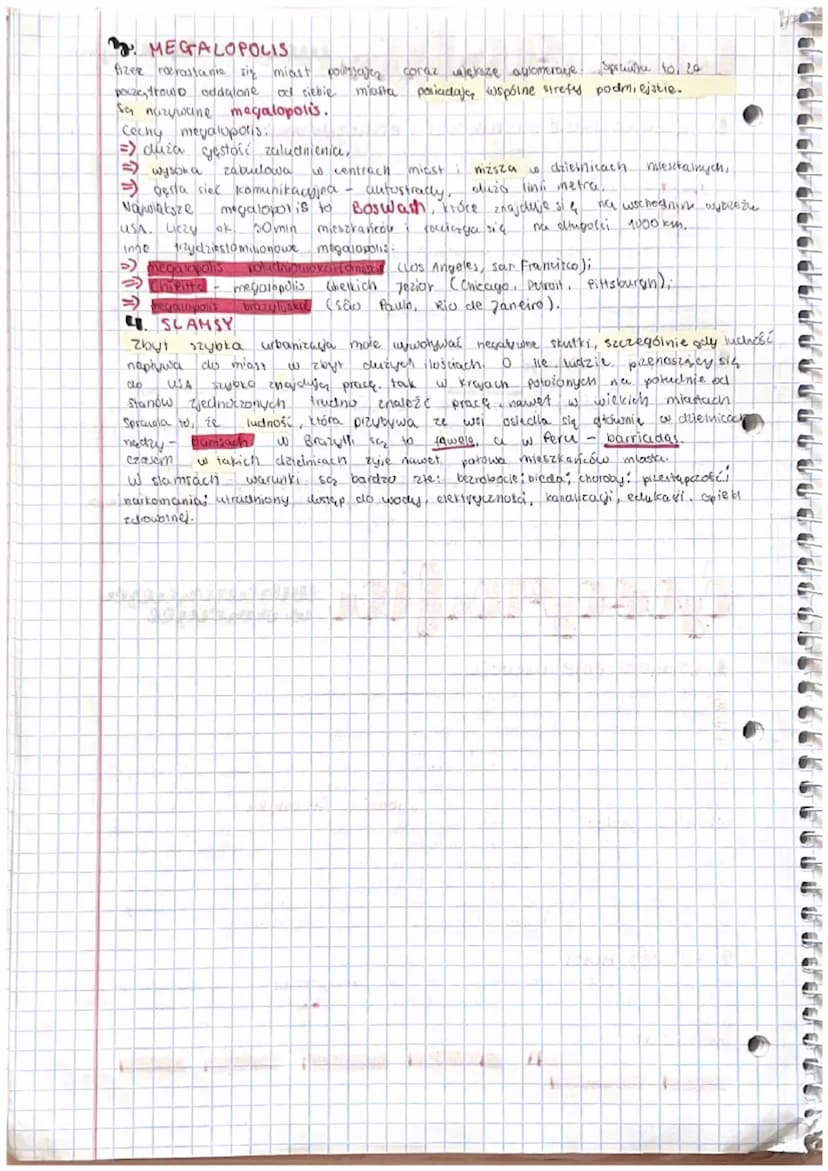 3. MEGALOPOLIS
Przez rozrastanie się miast powstają coraz większe aglomeracje. Sprawia to, że
początkowo oddalone od siebie miasta posiadają wspólne strefy podmiejskie.
Są nazywane megalopolis.
Cechy megalopolis:
=> duża gęstość zaludnienia,
=> wysoka zabudowa w centrach miast i niższa w dzielnicach mieszkalnych,
=> gęsta sieć komunikacyjna - autostrady, dużo linii metra.
Największe megalopolis to Boswash, które znajduje się na wschodnim wybrzeżu
USA. Liczy ok. 50mln mieszkańców i rozciąga się na długości 1000 km.
Inne trzydziestomilionowe megalopolis:
=> megalopolis południowokalifornijskie (Los Angeles, San Francisco);
=> ChiPitts - megalopolis Wielkich Jezior (Chicago, Detroit, Pittsburgh);
=> megalopolis brazylijskie (São Paulo, Rio de Janeiro).
4. SLAMSY
Zbyt szybka urbanizacja może wywoływać negatywne skutki, szczególnie gdy ludność
napływa do miast w zbyt dużych ilościach. O ile ludzie przenoszący się
do USA szybko znajdują pracę, tak w krajach położonych na południe od
Stanów Zjednoczonych trudno znaleźć pracę, nawet w wielkich miastach
Sprawia to, że ludność, która przybywa ze wsi osiedla się głównie w dzielnicach
nędzy - slumsach w Brazylii są to fawele, a w Peru - barriadas.
Czasem w takich dzielnicach żyje nawet połowa mieszkańców miasta.
W slamsach warunki są bardzo złe: bezrobocie; bieda; choroby; przestępczość;
narkomania; utrudniony dostęp do wody, elektryczności, kanalizacji, edukacji, opieki
zdrowotnej.